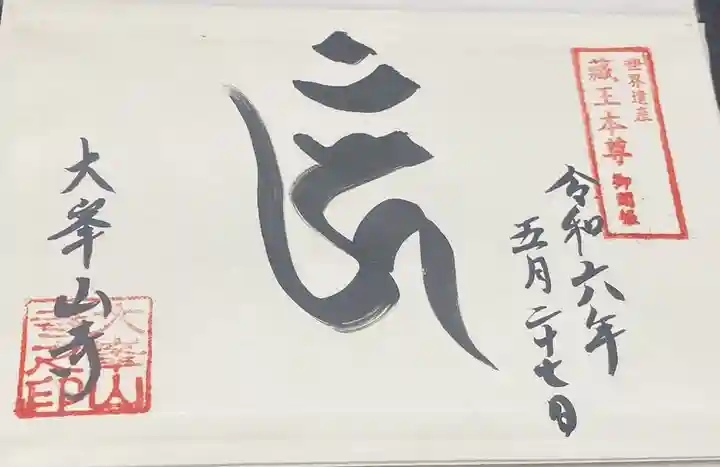 世界遺産
蔵王本尊御開帳
令和六年
五月二十七日
大峯山寺